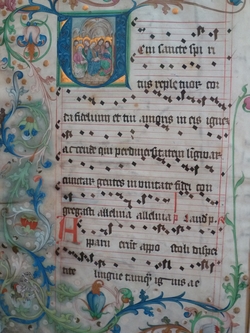 Veni sancte spiri
tus reple tuor cor
da fidelium et tui amoris in eis ignem
accende qui per diversitatem linguar
cunctar gentes in unitate fidei con
gregasti alleluia alleluia
Apparuerunt apostolis disper
tite lingue tamquam ignis